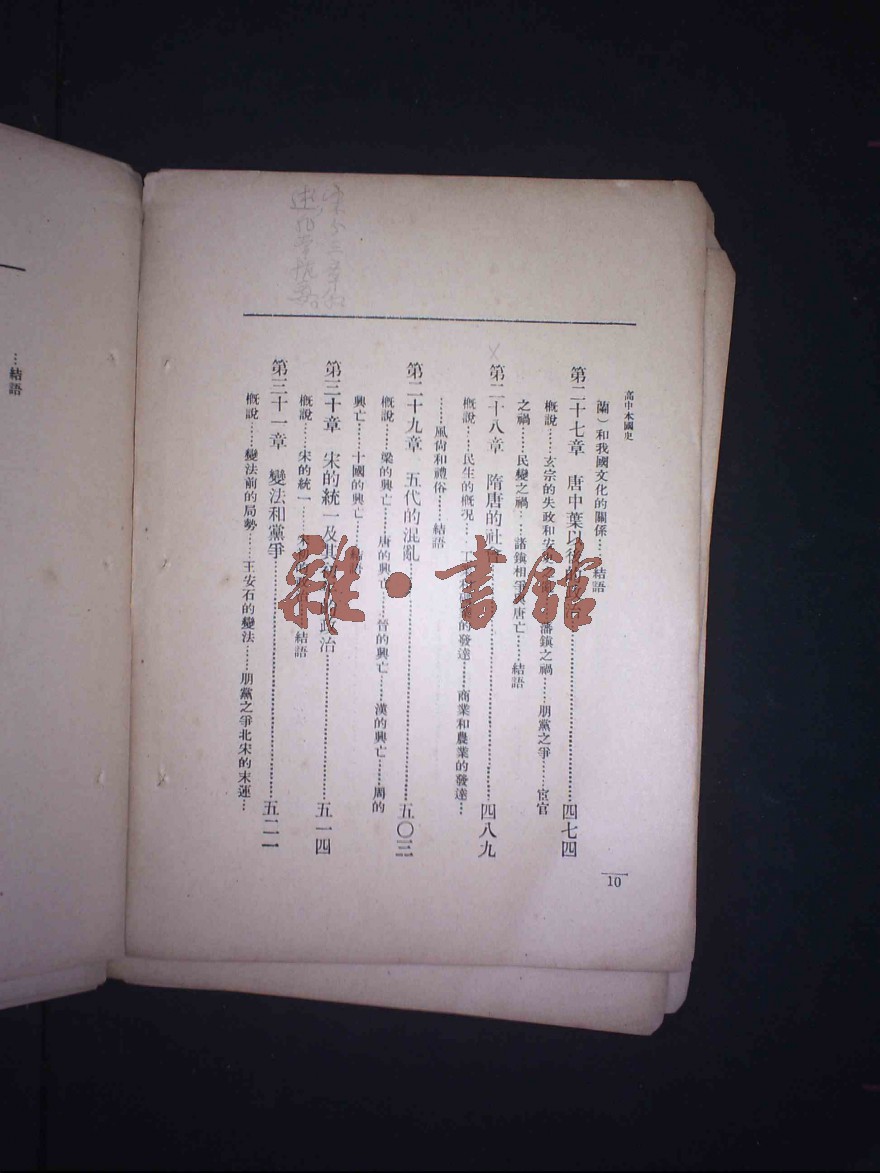 高中本國史
10
蘭）和我國文化的關係……結語
第二十七章 唐中葉以後……四七四
概說……玄宗的失政和安……藩鎭之禍……朋黨之爭……宦官
之禍……民變之禍……諸鎭相爭與唐亡……結語
第二十八章 隋唐的社會……四八九
概說……民生的概況……工……的發達……商業和農業的發達…
……風尙和禮俗……結語
第二十九章 五代的混亂……五〇三
概說……梁的興亡……唐的興亡……晉的興亡……漢的興亡……周的
興亡……十國的興亡……結語
第三十章 宋的統一及其……政治……五一四
概說……宋的統一……結語
第三十一章 變法和黨爭……五二一
概說……變法前的局勢……王安石的變法……朋黨之爭北宋的末運…
…結語
雜·書館